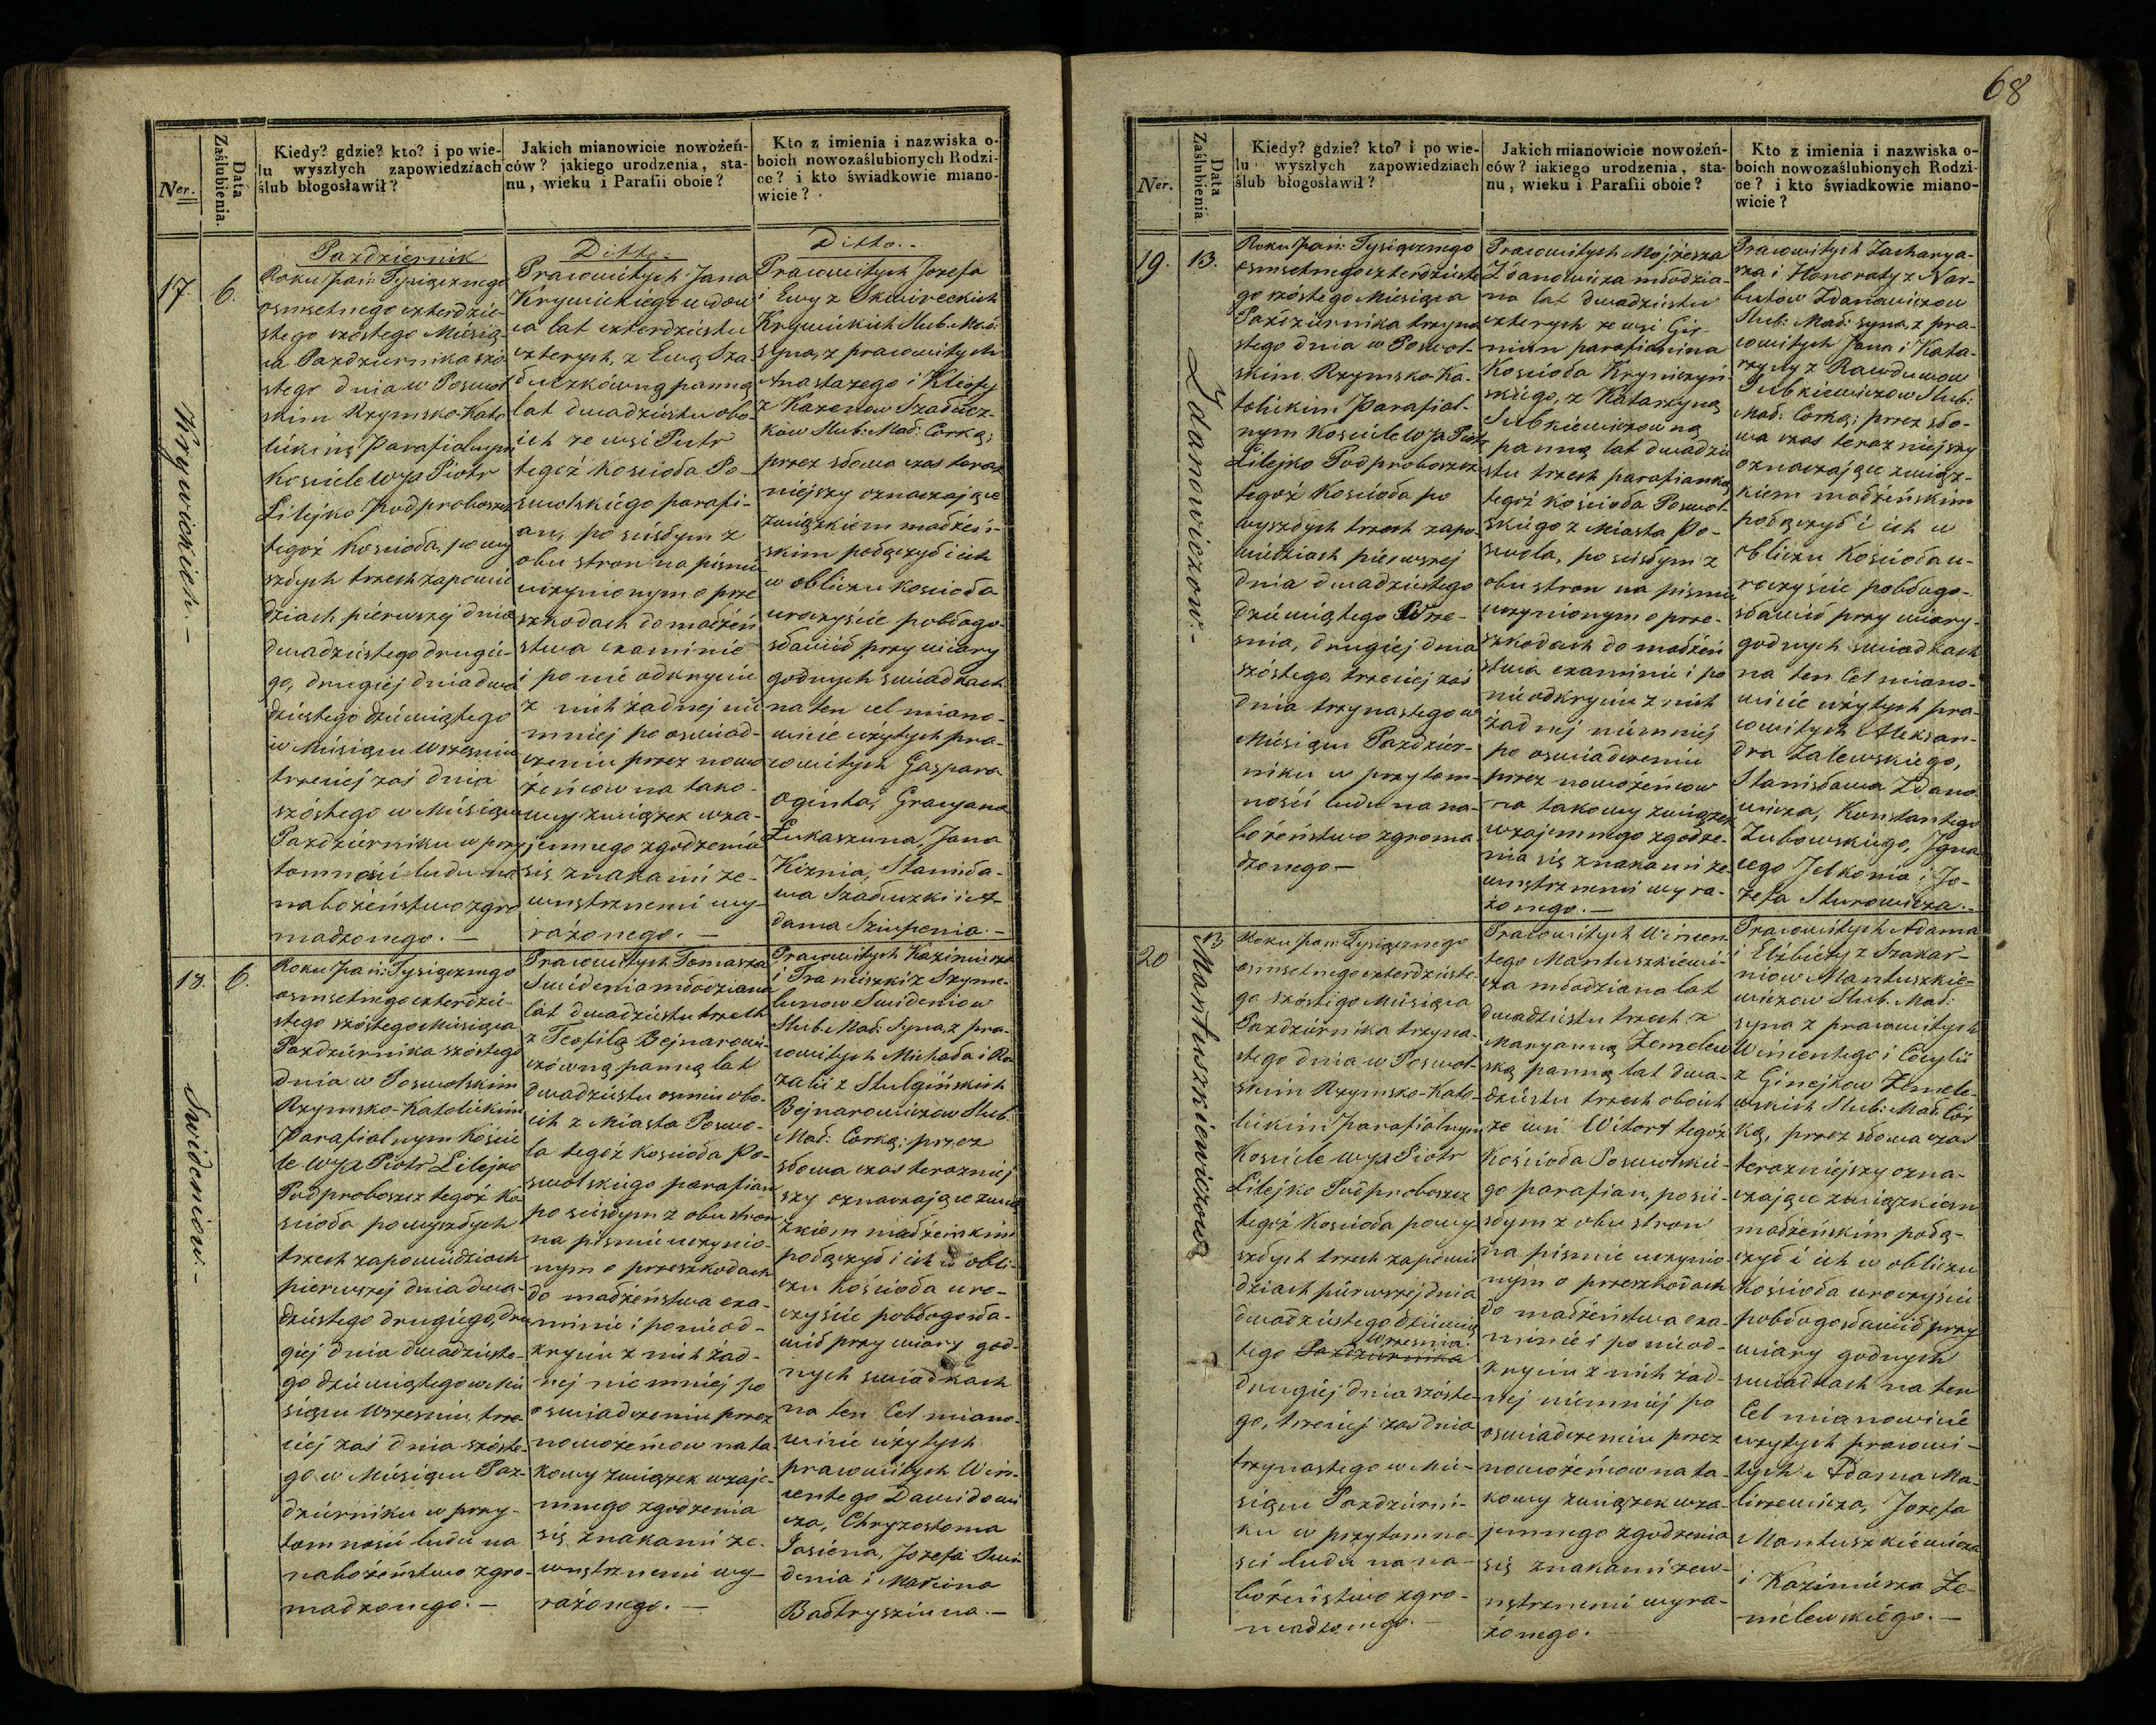 Ner.
Data Zaślubienia.
Kiedy? gdzie? kto? i po wie-
lu wyszłych zapowiedziach
ślub błogosławił?
Jakich mianowicie nowożeń-
ców? jakiego urodzenia, sta-
nu, wieku i Parafii oboie?
Kto z imienia i nazwiska o-
boich nowozaślubionych Rodzi-
ce? i kto świadkowie miano-
wicie?
17.
6.
Krywickich.—
Pazdziernik
Roku Pań: Tysiącznego
osmsetnego czterdzie-
stego szóstego Miesią-
ca Pazdziernika szó-
stego dnia w Poswol
skim Rzymsko-Kato
lickim Parafialnym
Kościele WJX Piotr
Lilejko Podproboszcz
tegoż Kościoła, po wy
szłych trzech zapowie
dziach pierwszej dnia
dwadziestego drugie-
go, drugiéj dnia dwa
dziestego dziewiątego
w Miesiącu Wrzesniu
trzeciej zaś dnia
szóstego w Miesiącu
Pazdzierniku w przy
tomności ludu na
nabożeństwo zgro
madzonego.—
Ditto.
Pracowitych Jana
Krywickiego wdow
ca lat czterdziestu
czterych, z Ewą Sza
łuczkówną panną
lat dwadziestu obo-
ich ze wsi Putr
tegoż Kościoła Po-
swolskiego parafi-
an, po ścisłym z
obu stron na pismie
uczynionym o prze
szkodach do małżeń
stwa examinie
i po nie odkryciu
z nich żadnej nie
mniéj po oswiad-
czeniu przez nowo
żeńcow na tako-
wy związek wza-
jemnego zgodzenia
się znakami ze-
wnętrznemi wy-
rażonego.—
Ditto.
Pracowitych Jozefa
i Ewy z Skwireckich
Krywickich Slub. Mał:
syna, z pracowitych
Anastazego i Kleofy
z Kazenow Szałucz-
kow Slub: Mał: Corką;
przez słowa czas teraz
niejszy oznaczające
związkiem małżeń-
skim połączył i ich
w obliczu Kościoła
uroczyście pobłogo-
sławił przy wiary
godnych swiadkach
na ten cel miano-
wicie użytych pra-
cowitych Gaspara
Oginta, Grancjana
Łukaszuna, Jana
Kiznia, Stanisła-
wa Szałuczki i A-
dama Sziupenia.—
18.
6.
Swideniow.—
Roku Pań: Tysiącznego
osmsetnego czterdzie-
stego szóstego Miesiąca
Pazdziernika szóstego
dnia w Poswolskim
Rzymsko-Katolickim
Parafialnym Koście
le WJX Piotr Lilejko
Podproboszcz tegoż Ko
ścioła po wyszłych
trzech zapowiedziach
pierwszej dnia dwa-
dziestego drugiego, dru
giéj dnia dwadzieste-
go dziewiątego w Mie
siącu Wrzesniu, trze-
ciéj zaś dnia szóste-
go w Miesiącu Paz-
dzierniku w przy-
tomności ludu na
nabożeństwo zgro-
madzonego.—
Pracowitych Tomasza
Swidenia młodziana
lat dwadziestu trzech
z Teofilą Bejnarowi-
czówną panną lat
dwadziestu osmiu obo-
ich z Miasta Poswo-
la tegoż Kościoła Po-
swolskiego parafian
po ścisłym z obu stron
na pismie uczynio-
nym o przeszkodach
do małżeństwa exa-
minie i po nieod-
kryciu z nich żad-
nej nie mniéj po
oswiadczeniu przez
nowożeńcow na ta-
kowy związek wzaje-
mnego zgodzenia
się znakami ze-
wnętrznemi wy-
rażonego.—
Pracowitych Kazimierza
i Franciszki z Szyme-
lunow Swideniow
Slub. Mał: Syna, z pra-
cowitych Michała i Ro
zalii z Stulgińskich
Bejnarowiczow Slub:
Mał: Corką; przez
słowa czas terazniej
szy oznaczające zwią
zkiem małżeńskim
połączył i ich w obli-
czu Kościoła uro-
czyście pobłogosła-
wił przy wiary god-
nych swiadkach
na ten Cel miano-
wicie użytych
pracowitych Win-
centego Dawidowi
cza, Chryzostoma
Jasiena, Jozefa Swi
denia i Marcina
Bałtryszuna.—
68
Ner.
Data Zaślubienia
Kiedy? gdzie? kto? i po wie-
lu wyszłych zapowiedziach
ślub błogosławił?
Jakich mianowicie nowożeń-
ców? iakiego urodzenia, sta-
nu, wieku i Parafii oboie?
Kto z imienia i nazwiska o-
boich nowozaślubionych Rodzi-
ce? i kto świadkowie miano-
wicie?
19.
13.
Zdanowiczow.—
Roku Pań: Tysiącznego
osmsetnego czterdzieste
go szóstego Miesiąca
Pazdziernika trzyna
stego dnia w Poswol-
skim Rzymsko-Ka-
tolickim Parafial-
nym Kościele WJX Piotr
Lilejko Podproboszcz
tegoż Kościoła po
wyszłych trzech zapo-
wiedziach pierwszej
dnia dwadziestego
dziewiątego Wrze-
snia, drugiéj dnia
szóstego, trzeciéj zaś
dnia trzynastego w
Miesiącu Pazdzier-
niku w przytom-
ności ludu na na-
bożeństwo zgroma
dzonego—
Pracowitych Mojżesza
Zdanowicza młodzia-
na lat dwadziestu
czterych ze wsi Gir-
niun parafianina
Kościoła Kryniczyń-
skiego, z Katarzyną
Jutkiewiczowną
panną lat dwadzie
stu trzech parafianką
tegoż Kościoła Poswol-
skiego z Miasta Po-
swola, po ścisłym z
obu stron na pismie
uczynionym o prze-
szkodach do małżeń
stwa examinie i po
nieodkryciu z nich
żadnéj niemniéj
po oswiadczeniu
przez nowożeńcow
na takowy związek
wzajemnego zgodze-
nia się znakami ze-
wnętrznemi wyra-
żonego.—
Pracowitych Zacharya-
sza i Honoraty z Nar-
butow Zdanowiczow
Slub: Mał: syna, z pra-
cowitych Jana i Kata-
rzyny z Rawdunow
Jutkiewiczow Slub:
Mał: Corką; przez sło-
wa czas terazniejszy
oznaczające związ-
kiem małżeńskim
połączył i ich w
obliczu Kościoła u-
roczyście pobłogo-
sławił przy wiary-
godnych swiadkach
na ten Cel miano-
wicie użytych pra-
cowitych Aleksan-
dra Zalewskiego,
Stanisława Zdano-
wicza, Konstantego
Zubowskiego, Igna
cego Jetkonia i Jo-
zefa Sturowicza.—
20
13
Mantuszkiewiczow
Roku Pań: Tysiącznego
osmsetnego czterdzieste-
go szóstego Miesiąca
Pazdziernika trzyna-
stego dnia w Poswol-
skim Rzymsko-Kato-
lickim Parafialnym
Kościele WJX Piotr
Lilejko Podproboszcz
tegoż Kościoła po wy
szłych trzech zapowie
dziach pierwszéj dnia
dwadziestego dziewią
tego Pazdziernika Wrzesnia
drugiéj dnia szóste-
go, trzeciéj zaś dnia
trzynastego w Mie-
siącu Pazdzierni-
ku w przytomno-
ści ludu na na-
bożeństwo zgro-
madzonego.—
Pracowitych Wincen
tego Mantuszkiewi-
cza młodziana lat
dwadziestu trzech z
Maryanną Zemelew
ską panną lat dwa-
dziestu trzech oboich
ze wsi Witort tegoż
Kościoła Poswolskie-
go parafian, po ści-
słym z obu stron
na pismie uczynio
nym o przeszkodach
do małżeństwa exa-
minie i po nieod-
kryciu z nich żad-
néj niemniéj po
oswiadczeniu przez
nowożeńcow na ta-
kowy związek wza-
jemnego zgodzenia
się znakami zew-
nętrznemi wyra-
żonego.
Pracowitych Adama
i Elżbiety z Szakar-
niow Mantuszkie-
wiczow Slub. Mał:
syna z pracowitych
Wincentego i Cecylii
z Ginejkow Zemele-
wskich Slub: Mał: Cór
ką, przez słowa czas
terazniejszy ozna-
czające związkiem
małżeńskim połą-
czył i ich w obliczu
Kościoła uroczyście
pobłogosławił przy
wiary godnych
swiadkach na ten
Cel mianowicie
użytych pracowi-
tych: Adama Ma-
licewicza, Jozefa
Mantuszkiewicza
i Kazimierza Ze-
melewskiego.—